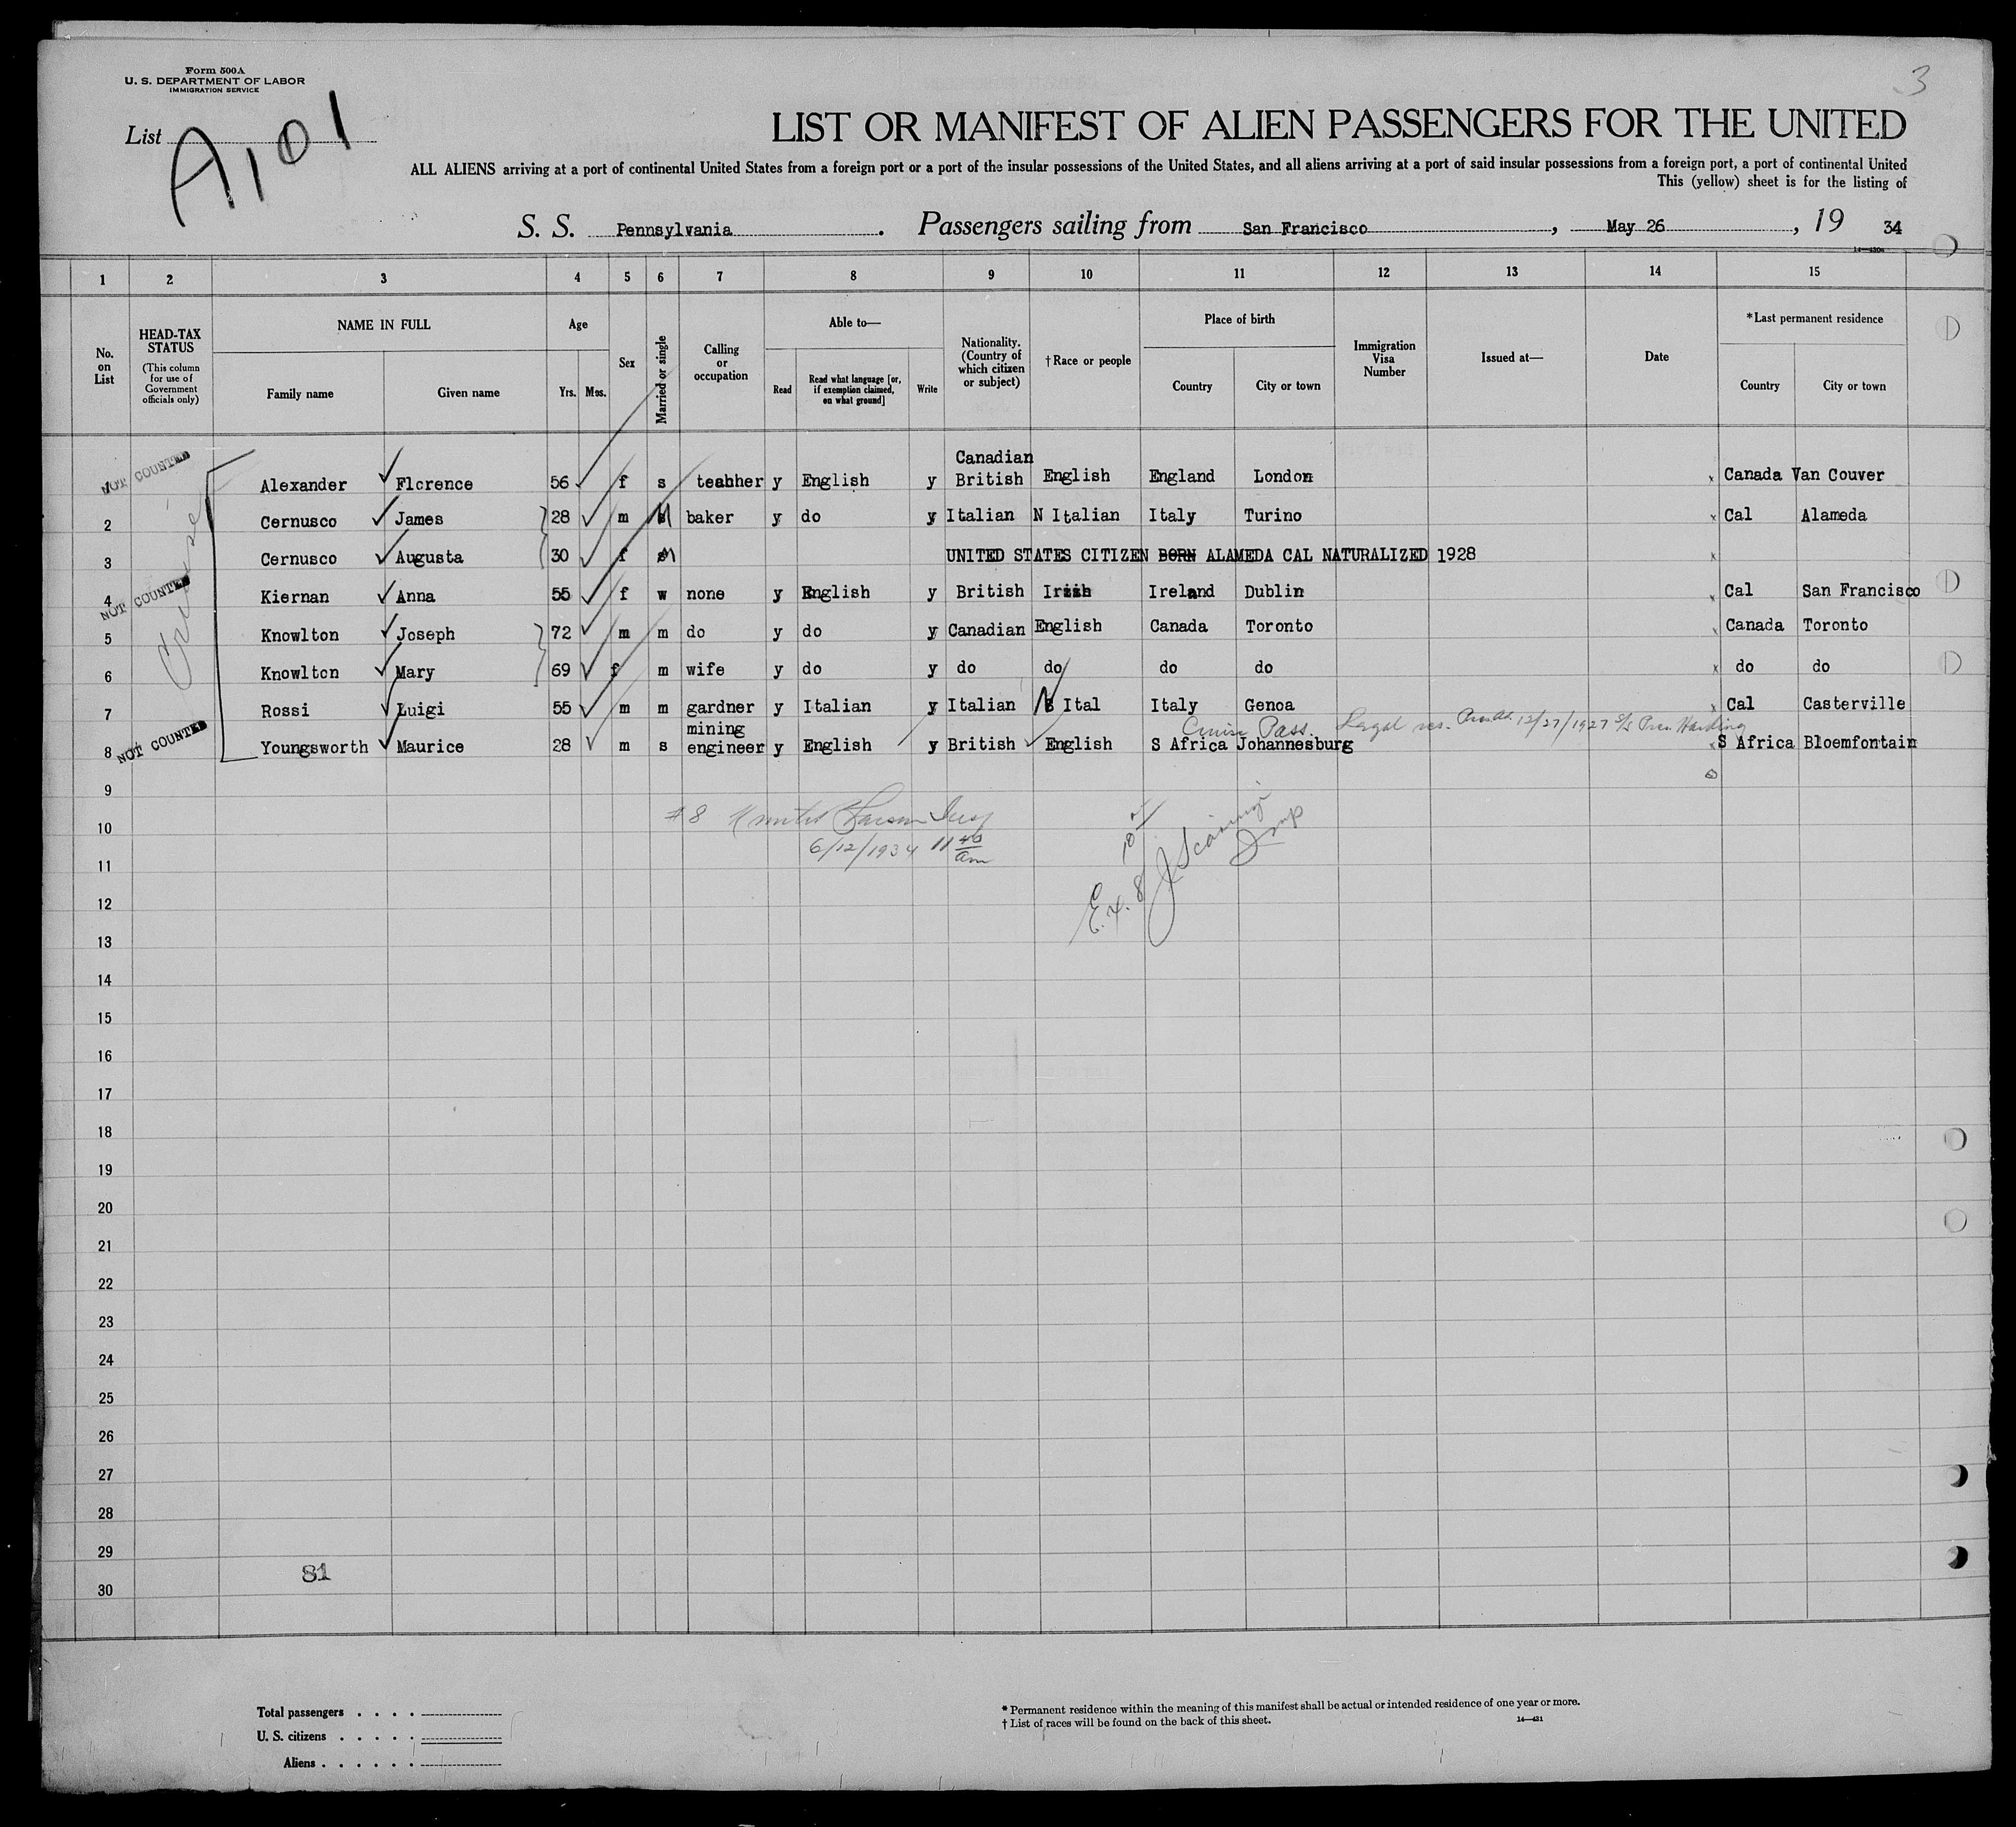 Form 500A
U. S. DEPARTMENT OF LABOR
IMMIGRATION SERVICE
3
List A101
LIST OR MANIFEST OF ALIEN PASSENGERS FOR THE UNITED
ALL ALIENS arriving at a port of continental United States from a foreign port or a port of the insular possessions of the United States, and all aliens arriving at a port of said insular possessions from a foreign port, a port of continental United
This (yellow) sheet is for the listing of
S. S. Pennsylvania. Passengers sailing from San Francisco, May 26, 19 34
1 2 3 4 5 6 7 8 9 10 11 12 13 14 15
No. on List
HEAD-TAX STATUS
(This column for use of Government officials only)
NAME IN FULL
Family name Given name
Age
Yrs. Mos.
Sex
Married or single
Calling or occupation
Able to—
Read
Read what language [or, if exemption claimed, on what ground]
Write
Nationality. (Country of which citizen or subject)
†Race or people
Place of birth
Country City or town
Immigration Visa Number
Issued at—
Date
*Last permanent residence
Country City or town
Canadian
1 NOT COUNTED Alexander Florence 56 f s teahher y English y British English England London x Canada Van Couver
2 Cernusco James 28 m M baker y do y Italian N Italian Italy Turino x Cal Alameda
3 Cernusco Augusta 30 f M UNITED STATES CITIZEN BORN ALAMEDA CAL NATURALIZED 1928 x
4 NOT COUNTED Kiernan Anna 55 f w none y English y British Irish Ireland Dublin x Cal San Francisco
5 Knowlton Joseph 72 m m do y do y Canadian English Canada Toronto x Canada Toronto
6 Knowlton Mary 69 f m wife y do y do do do do x do do
7 Rossi Luigi 55 m m gardner y Italian y Italian N Ital Italy Genoa x Cal Casterville
mining Cruise Pass. Legal res. 12/27/1927 S/S Pres. Harding
8 NOT COUNTED Youngsworth Maurice 28 m s engineer y English y British English S Africa Johannesburg x S Africa Bloemfontain
Cruise
9
10 #8 Admitted Larson Insp
11 6/12/1934 11 40 am
Ex. 8 Insp
12
13
14
15
16
17
18
19
20
21
22
23
24
25
26
27
28
29
81
30
Total passengers . . . .
U. S. citizens . . . . .
Aliens . . . . . .
* Permanent residence within the meaning of this manifest shall be actual or intended residence of one year or more.
† List of races will be found on the back of this sheet.
14—431